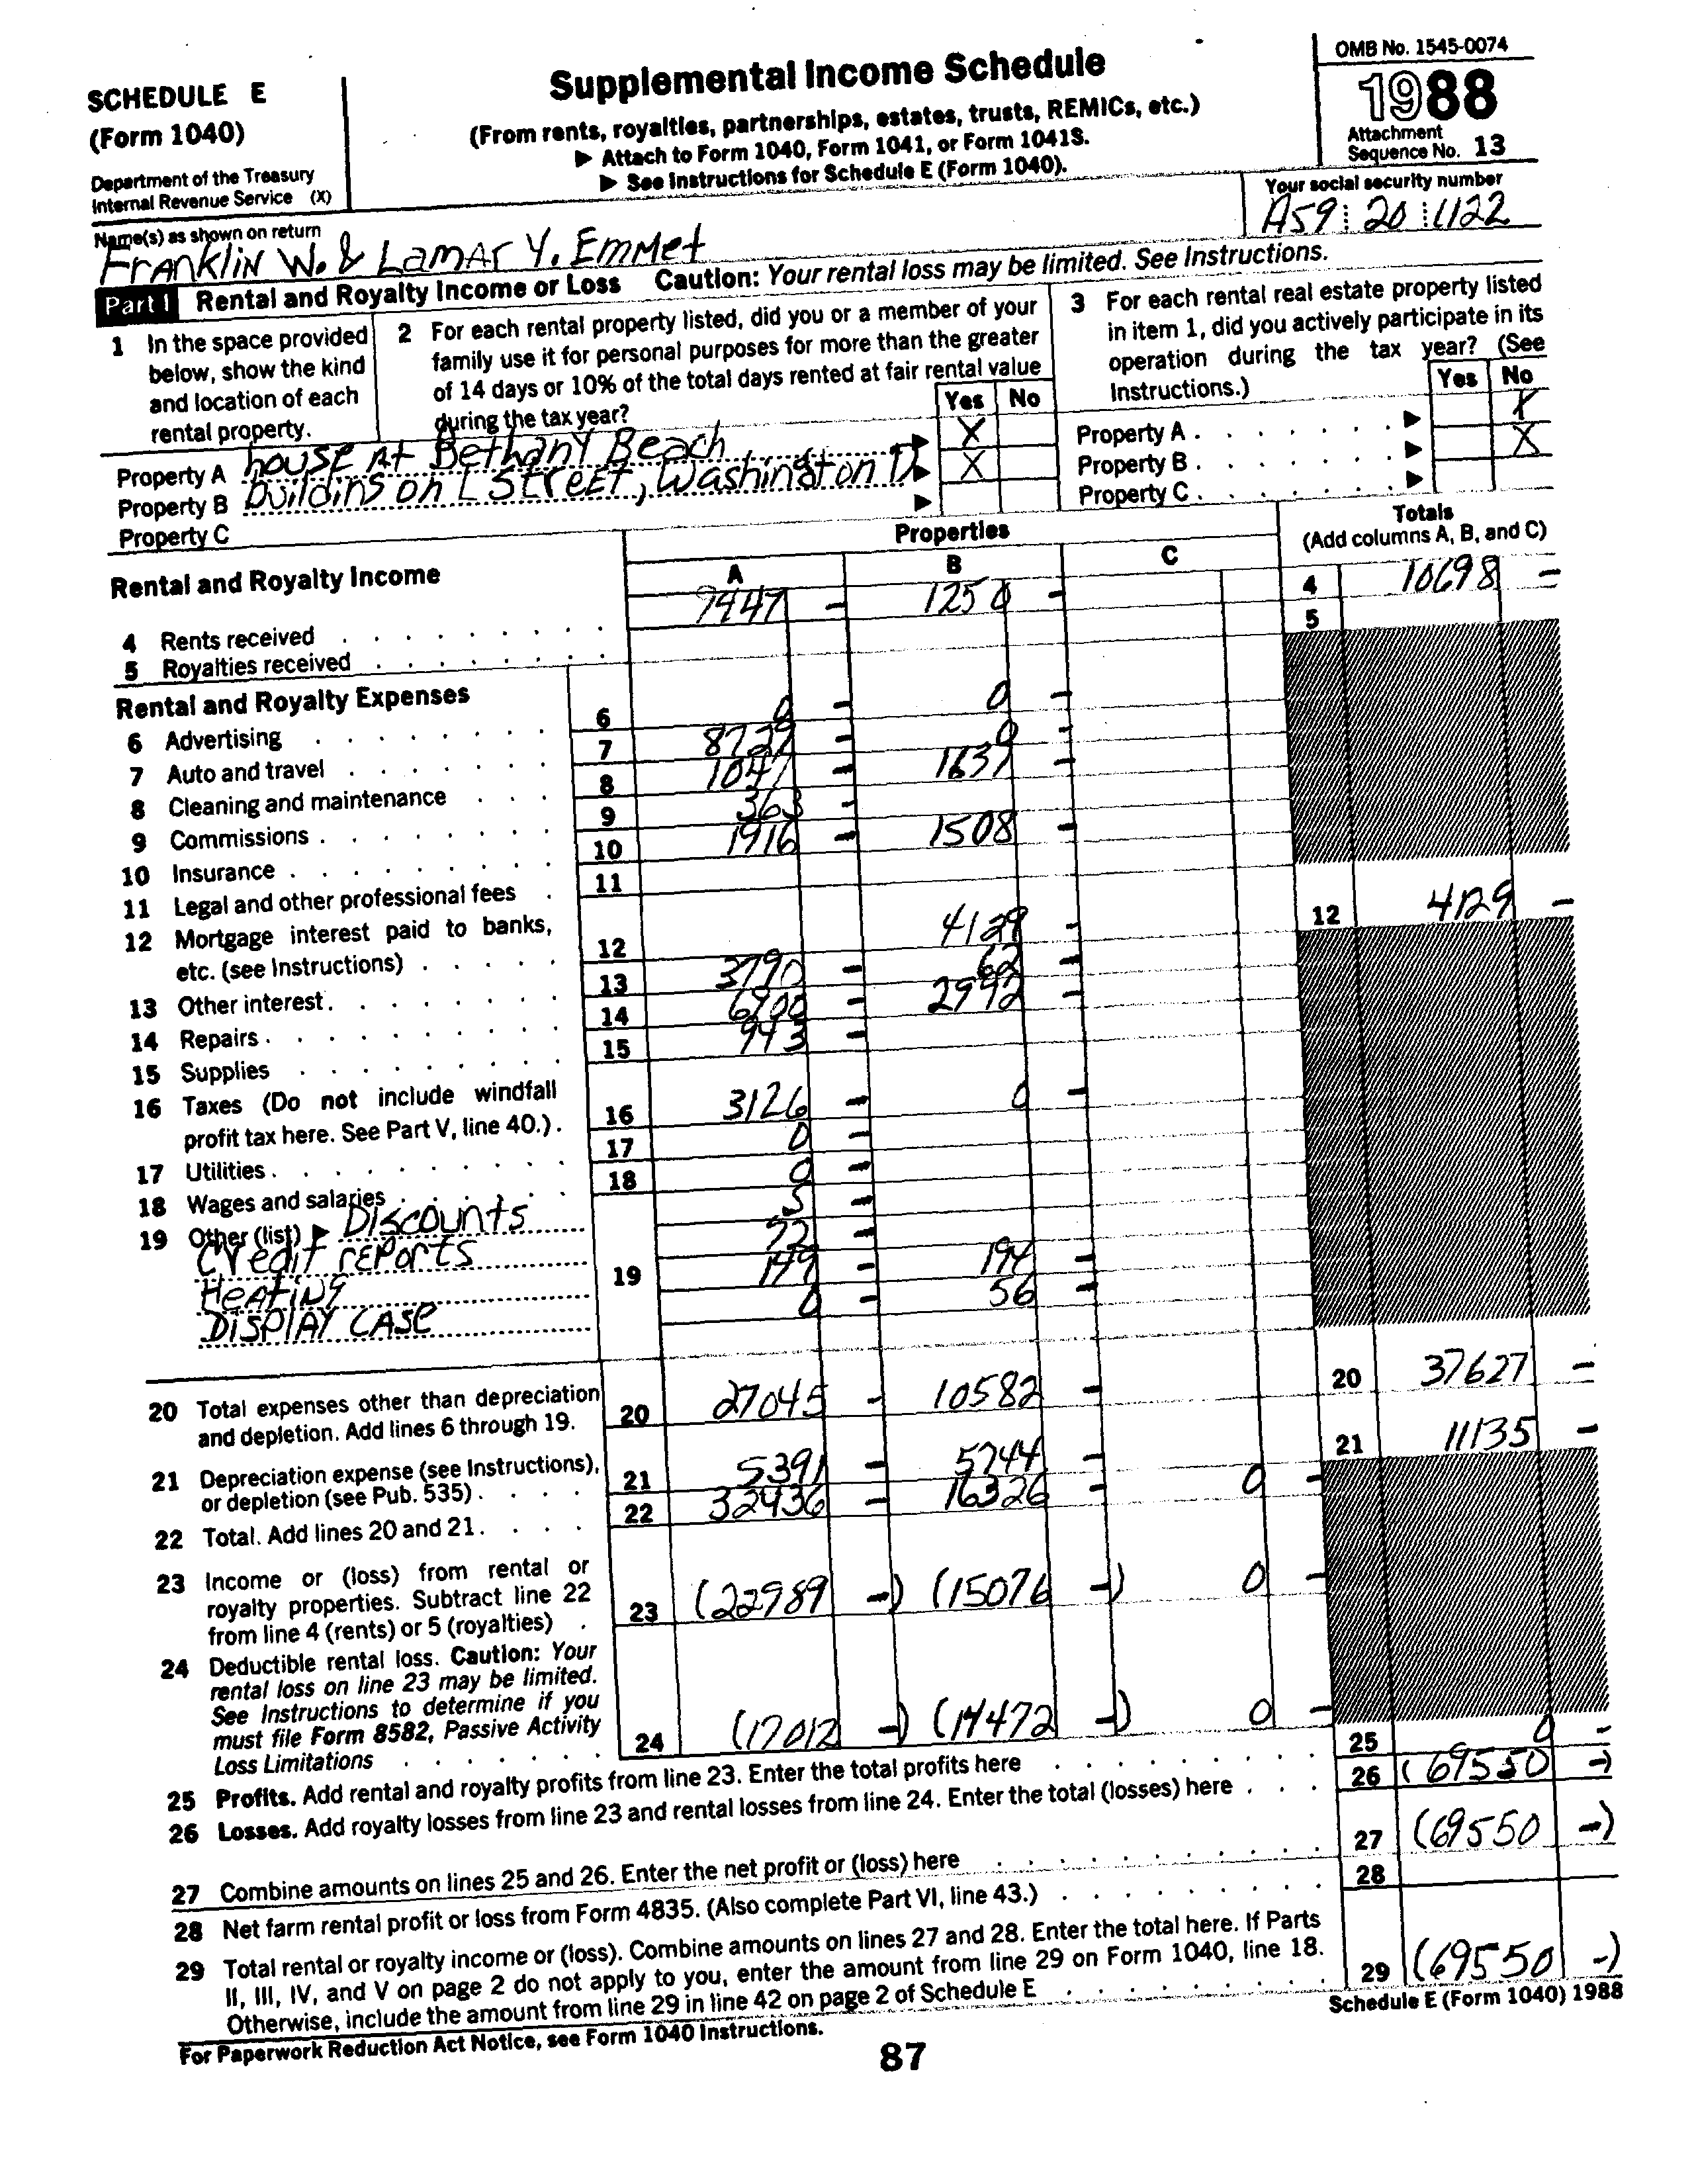 SCHEDULE E
(Form 1040)
Department of the Treasury
Internal Revenue Service (X)
Supplemental Income Schedule
(From rents, royalties, partnerships, estates, trusts, REMICs, etc.)
▶ Attach to Form 1040, Form 1041, or Form 1041S.
▶ See Instructions for Schedule E (Form 1040).
OMB No. 1545-0074
1988
Attachment
Sequence No. 13
Name(s) as shown on return
Franklin W. & Lamar Y. Emmet
Your social security number
A59 20 1122
Part I Rental and Royalty Income or Loss Caution: Your rental loss may be limited. See Instructions.
1 In the space provided
below, show the kind
and location of each
rental property.
2 For each rental property listed, did you or a member of your
family use it for personal purposes for more than the greater
of 14 days or 10% of the total days rented at fair rental value
during the tax year?
Yes No
3 For each rental real estate property listed
in item 1, did you actively participate in its
operation during the tax year? (See
Instructions.)
Yes No
Property A house At Bethany Beach ▶ X
Property B Building on L Street, Washington D ▶ X
Property C ▶
Property A . . . . . . . ▶ X
Property B . . . . . . . ▶ X
Property C . . . . . . . ▶
Rental and Royalty Income
Properties
A B C
Totals
(Add columns A, B, and C)
4 Rents received 9447 - 1250 - 4 10698 -
5 Royalties received 5
Rental and Royalty Expenses
6 Advertising 6 0 - 0 -
7 Auto and travel 7 8727 - 0 -
8 Cleaning and maintenance 8 1047 - 1637 -
9 Commissions 9 363 -
10 Insurance 10 1916 - 1508 -
11 Legal and other professional fees 11
12 Mortgage interest paid to banks,
etc. (see Instructions) 12 4129 - 12 4129 -
13 Other interest 13 3790 - 62 -
14 Repairs 14 6900 - 2992 -
15 Supplies 15 943 -
16 Taxes (Do not include windfall
profit tax here. See Part V, line 40.) 16 3126 - 0 -
17 Utilities 17 0 -
18 Wages and salaries 18 0 -
19 Other (list) ▶ Discounts 5 -
Credit reports 72 -
Heating 19 149 - 194 -
Display Case 0 - 56 -
20 Total expenses other than depreciation
and depletion. Add lines 6 through 19. 20 27045 - 10582 - 20 37627 -
21 Depreciation expense (see Instructions),
or depletion (see Pub. 535) 21 5391 - 5744 - 21 11135 -
22 Total. Add lines 20 and 21 22 32436 - 16326 - 0 -
23 Income or (loss) from rental or
royalty properties. Subtract line 22
from line 4 (rents) or 5 (royalties) 23 (22989 -) (15076 -) 0 -
24 Deductible rental loss. Caution: Your
rental loss on line 23 may be limited.
See Instructions to determine if you
must file Form 8582, Passive Activity
Loss Limitations 24 (17012 -) (14472 -) 0 -
25 Profits. Add rental and royalty profits from line 23. Enter the total profits here 25 0 -
26 Losses. Add royalty losses from line 23 and rental losses from line 24. Enter the total (losses) here 26 (69550 -)
27 Combine amounts on lines 25 and 26. Enter the net profit or (loss) here 27 (69550 -)
28 Net farm rental profit or loss from Form 4835. (Also complete Part VI, line 43.) 28
29 Total rental or royalty income or (loss). Combine amounts on lines 27 and 28. Enter the total here. If Parts
II, III, IV, and V on page 2 do not apply to you, enter the amount from line 29 on Form 1040, line 18.
Otherwise, include the amount from line 29 in line 42 on page 2 of Schedule E 29 (69550 -)
For Paperwork Reduction Act Notice, see Form 1040 Instructions.
Schedule E (Form 1040) 1988
87